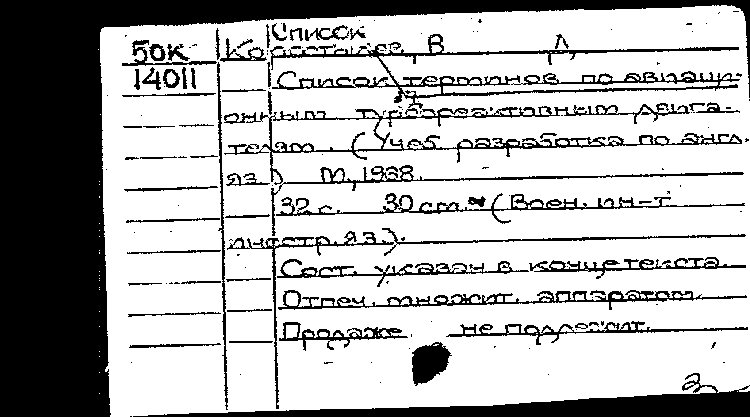 Список
50К Коростылев, В Л,
14011 Список терминов по авиаци-
онным турбореактивным двига-
телям. (Учеб разработка по англ.
яз.) М,
32 с. 30 см. (Воен. ин-т
иностр. яз.).
Сост. указан в конце текста
Отпеч. множит. аппаратом.
Продаже не подлежит.